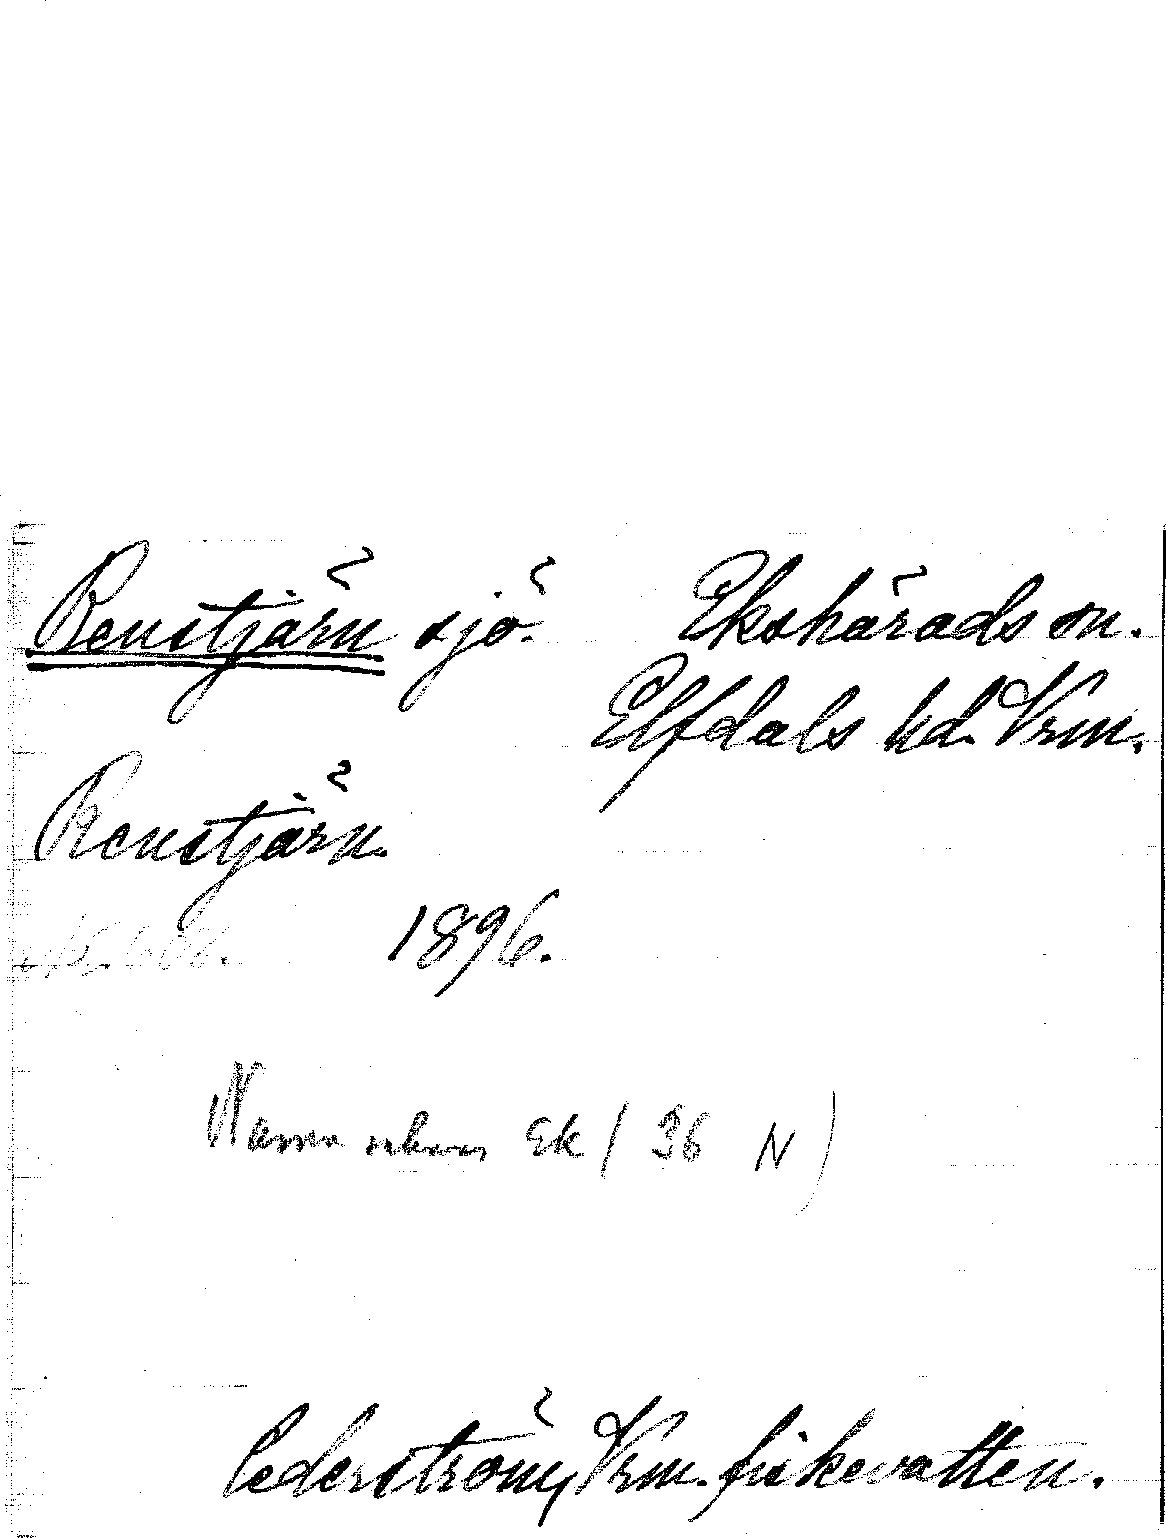 Renstjärn sjö. Ekshärads sn.
Elfdals hd. Vrm.
Renstjärn.
1896.
Ek (36 N)
Cederström, Vrm. fiskevatten.